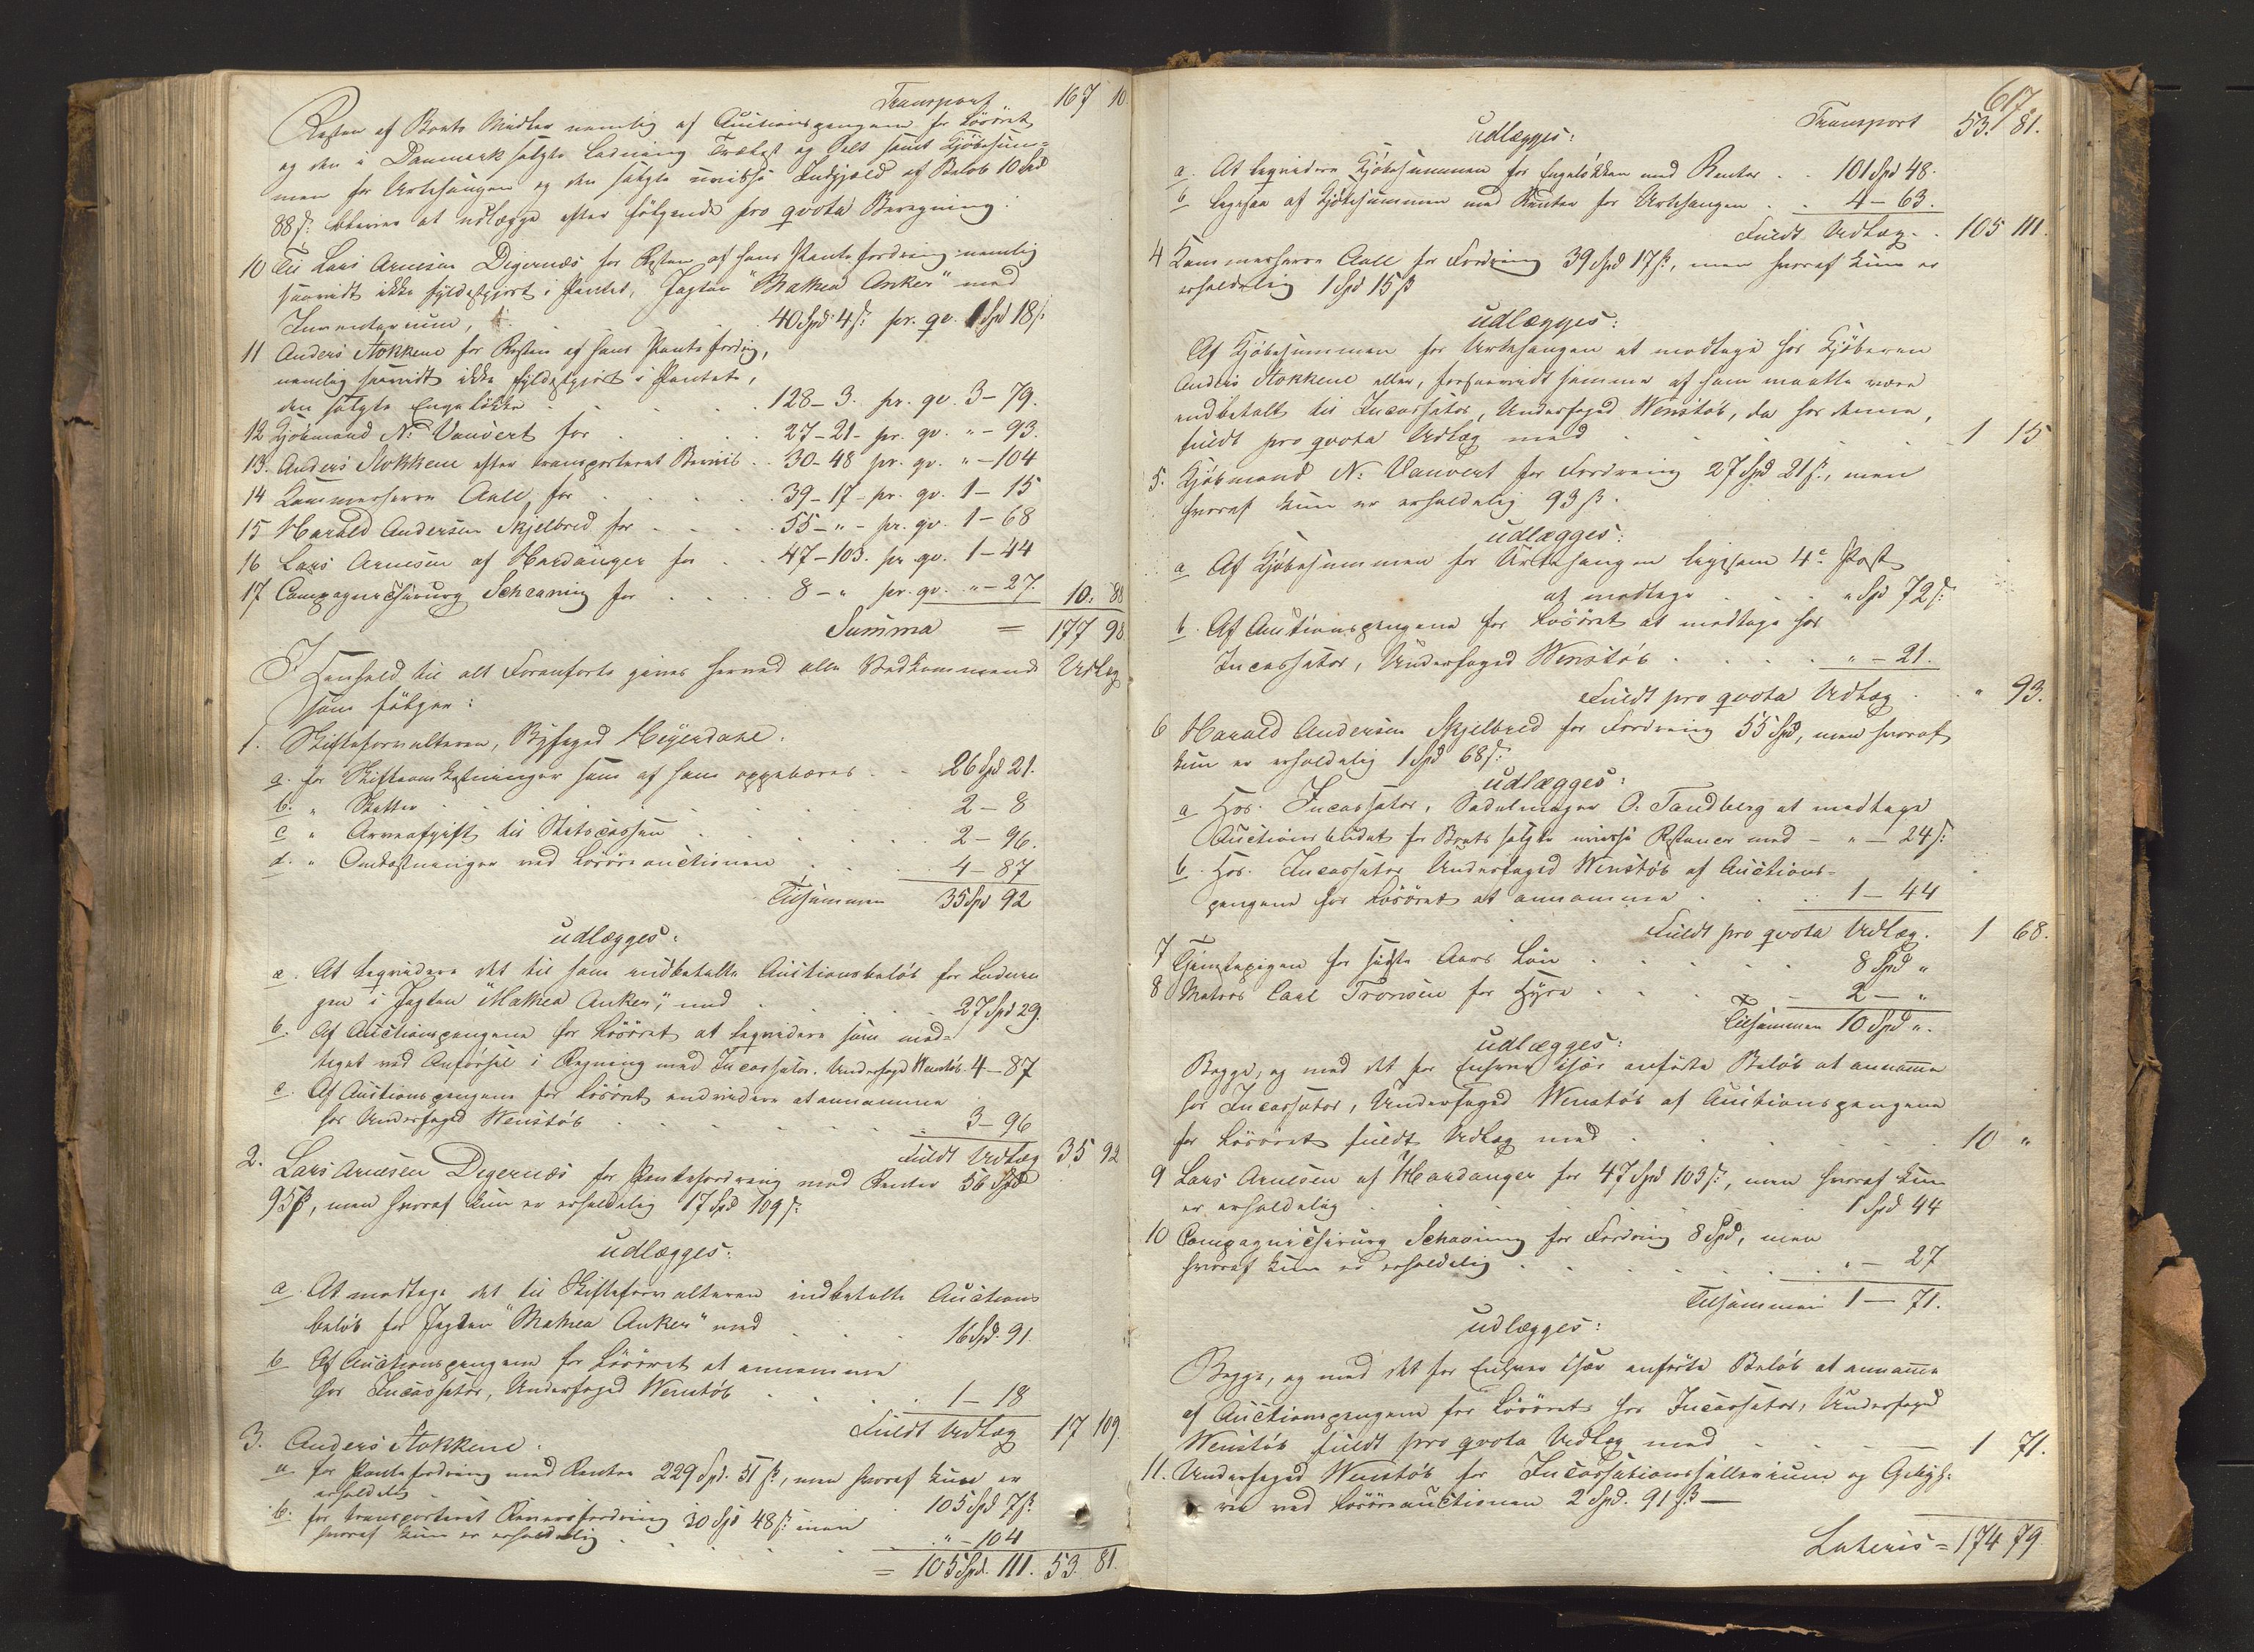 Transport 167 10.
Resten af Boets Midler nemlig af Auctionspengene for Løsøret
og den i Danmark solgte Ladning Trælast og Sild samt Kjøbesum-
men for Urtehaugen og den solgte uvisse Indgjæld af Beløb 10 Spd
88 ß. bliver at udlægge efter følgende pro qvota Beregning:
10 Til Lars Arnesen Digernæs for Resten af hans Pantefordring nemlig
saavidt ikke fyldestgjort i Pantet, Jagten "Mathea Anker" med
Inventarium, . . . 40 Spd. 4 ß. pr. qv. 1 Spd 18 ß.
11 Anders Stokkene for Resten af hans Pantefordrg,
nemlig saavidt ikke fyldestgjort i Pantet,
den solgte Engeløkke . . . 128 – 3. pr. qv. 3 – 79.
12 Kjøbmand N: Vauvert for . . . 27 – 21 – pr. qv. " – 93.
13. Anders Stokkene efter transporteret Beviis . . 30 – 48 pr. qv. " – 104
14 Kammerherre Aall for . . . 39 – 17 – pr. qv. 1 – 15
15 Harald Andersen Skjelbred for . . . 55 – " – pr. qv. 1 – 68
16 Lars Arnesen af Hardanger for . . 47 – 103. pr qv. 1 – 44
17 Compagniechirurg Schavning for . . . 8 – " pr. qv. " – 27. 10. 88
Summa = 177 98.
I Henhold til alt Foranførte gives herved alle Vedkommende Udlæg
som følger:
1. Skifteforvalteren, Byfoged Heyerdahl.
a. for Skifteomkostninger som af ham oppebæres . . 26 Spd 21.
b. " Skatter . . . 2 – 8
c " Arveafgift til Statscassen . . . 2 – 96.
d. " Omkostninger ved Løsøreauctionen . . . 4 – 87
Tilsammen 35 Spd 92
udlægges:
a. At beqvidere det til ham indbetalte Auctionsbeløb for Ladnin
gen i Jagten "Mathea Anker", med . . . 27 Spd 29.
b. Af Auctionspengene for Løsøret at liqvidere som mod-
taget ved Anførsel i Regning med Incassator, Underfoged Wenstøb 4 – 87
c. Af Auctionspengene for Løsøret endvidere at annamme
hos Underfoged Wenstøb . . . 3 – 96
Fuldt Udlæg 35 92
2. Lars Arnesen Degernæs for Pantefordring med Renter 56 Spd
95 ß, men hvoraf kun er erholdelig 17 Spd 109 ß.
udlægges:
a. At modtage det til Skifteforvalteren indbetalte Auctions
beløb for Jagten "Mathea Anker" med . . . 16 Spd. 91.
b Af Auctionspengene for Løsøret at annamme
hos Incassator, Underfoged Wenstøb . . . 1 – 18
Fuldt Udlæg 17 109.
3. Anders Stokkene.
a for Pantefordring med Renter 229 Spd. 51 ß, men hvoraf kun er
erholdelig . . . 105 Spd 7 ß.
b. for transporteret Reversfordring 30 Spd 48 ß. men
hvoraf kun er erholdelig . . . " – 104
= 105 Spd. 111. 53. 81.
617.
Transport 53. 81.
udlægges:
a. At liqvidere Kjøbesummen for Engeløkken med Renter . . 101 Spd 48.
b ligesaa af Kjøbesummen med Renter for Urtehaugen . . 4 – 63.
Fuldt Udlæg . . 105 111.
4 Kammerherre Aall for Fordring 39 Spd 17 ß., men hvoraf kun er
erholdelig 1 Spd 15 ß
udlægges:
Af Kjøbesummen for Urtehaugen at modtage hos Kjøberen
Anders Stokkene eller, forsaavidt samme af ham maatte være
indbetalt til Incassator, Underfoged Wenstøb, da hos denne,
fuldt pro qvota Udlæg med . . . 1 15
5. Kjøbmand N: Vauvert for Fordring 27 Spd 21 ß., men
hvoraf kun er erholdelig 93 ß.
udlægges:
a Af Kjøbesummen for Urtehaugen ligesom 4e Post
at modtage . . . " Spd 72 ß.
b. Af Auctionspengene for Løsøret at modtage hos
Incassator, Underfoged Wenstøb . . . " – 21.
Fuldt pro qvota Udlæg . . " 93.
6 Harald Andersen Skjelbred for Fordring 55 Spd, men hvoraf
kun er erholdelig 1 Spd 68 ß.
udlægges:
a Hos Incassator, Sadelmager O. Tandberg at modtage
Auctionsbudet for Boets solgte uvisse Restancer med – " – 24 ß.
b. Hos Incassator Underfoged Wenstøb af Auctions-
pengene for Løsøret at annamme . . . 1 – 44
Fuldt pro qvota Udlæg. 1 68.
7 Tjenestepigen for sidste Aars Løn . . . 8 Spd "
8 Matros Carl Tronsen for Hyre . . . 2 – "
Tilsammen 10 Spd ".
udlægges:
Begge, og med det for Enhver især anførte Beløb at annamme
hos Incassator, Underfoged Wenstøb af Auctionspengene
for Løsøret fuldt Udlæg med . . . 10 "
9 Lars Arnesen af Hardanger for 47 Spd 103 ß., men hvoraf kun
er erholdelig . . . 1 Spd 44
10 Compagniechirurg Schavning for Fordring 8 Spd, men
hvoraf kun er erholdelig . . . " – 27
Tilsammen 1 – 71.
udlægges:
Begge, og med det for Enhver især anførte Beløb at annamme
af Auctionspengene for Løsøret hos Incassator, Underfoged
Wenstøb fuldt pro qvota Udlæg med . . . 1 71.
11. Underfoged Wenstøb for Incassationssallarium og Gebyh-
rer ved Løsøreauctionen 2 Spd. 91 ß. –
Lateris = 174 79.